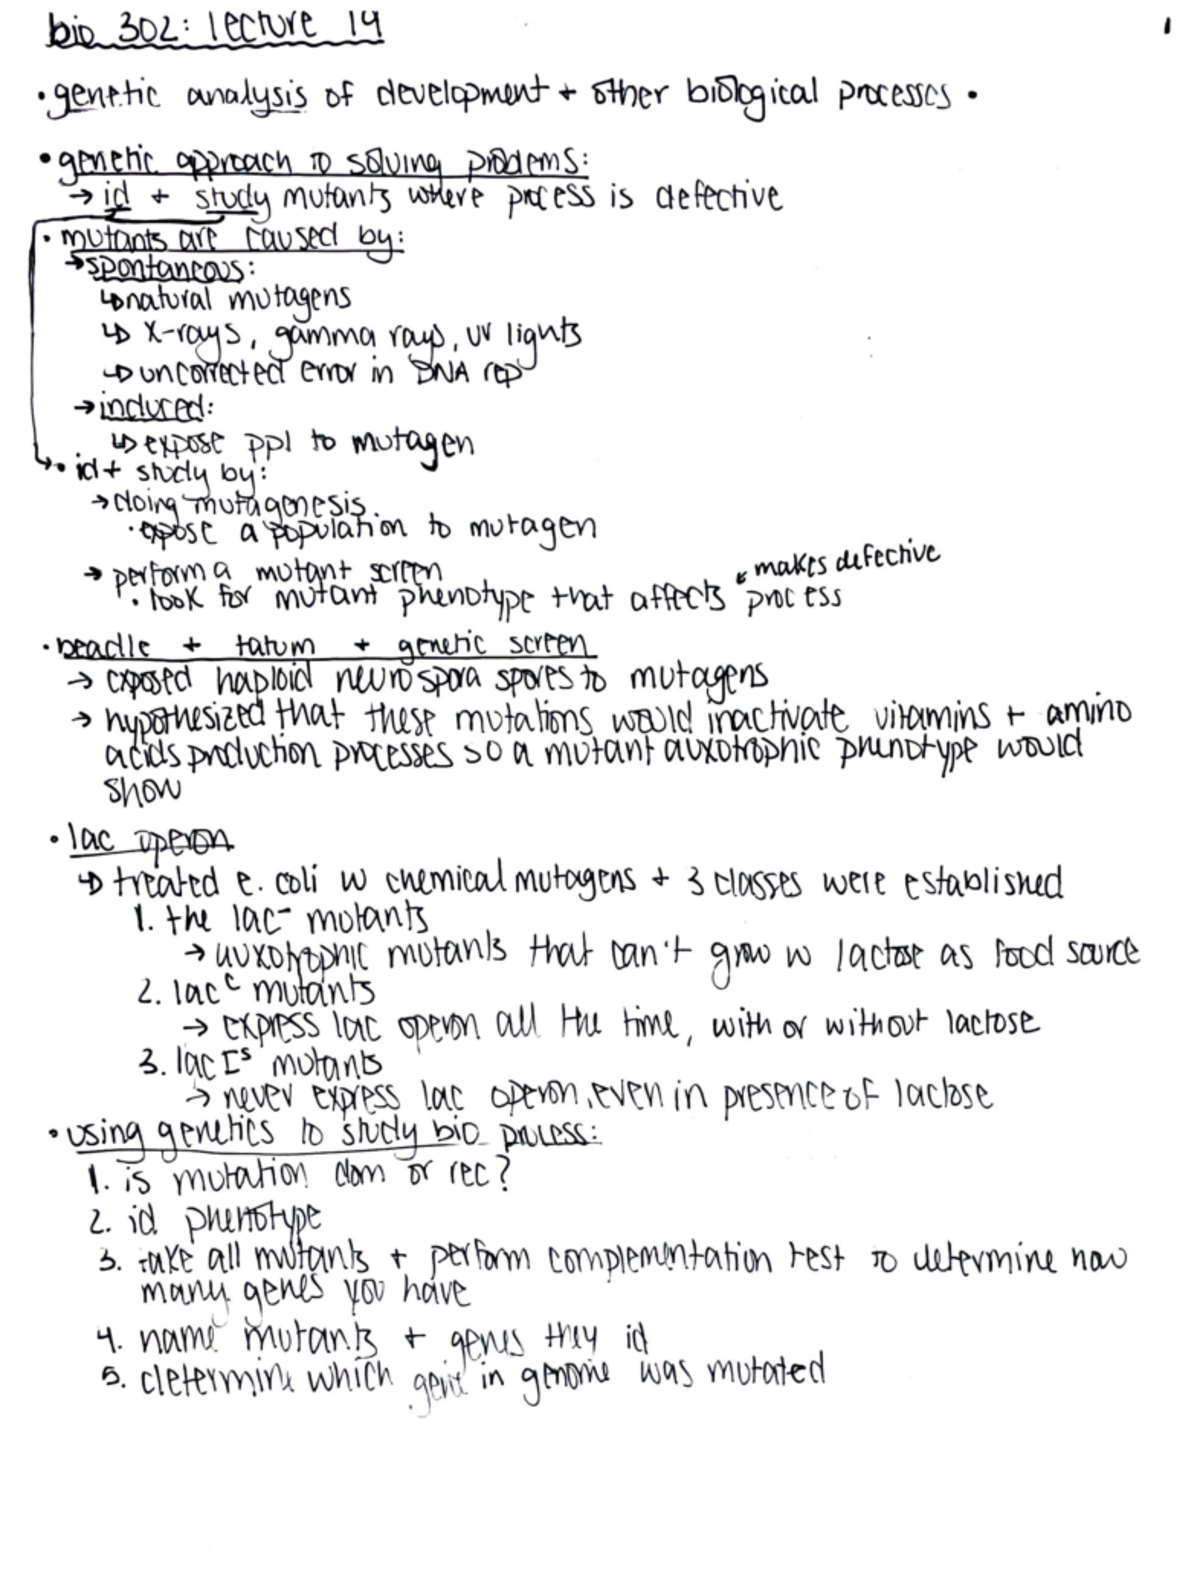 bio 302: lecture 14
1
• genetic analysis of development + other biological processes •
• genetic approach to solving problems:
→ id + study mutants where process is defective
• mutants are caused by:
→ spontaneous:
↳ natural mutagens
↳ X-rays, gamma rays, uv lights
↳ uncorrected error in DNA rep
→ induced:
↳ expose ppl to mutagen
→ • id + study by:
→ doing mutagenesis
• expose a population to mutagen
→ perform a mutant screen
makes defective
• look for mutant phenotype that affects process
• beadle + tatum + genetic screen
→ exposed haploid neurospora spores to mutagens
→ hypothesized that these mutations would inactivate vitamins + amino
acids production processes so a mutant auxotrophic phenotype would
show
• lac operon
↳ treated e. coli w chemical mutagens + 3 classes were established
1. the lac⁻ mutants
→ auxotrophic mutants that can't grow w lactose as food source
2. lacᶜ mutants
→ express lac operon all the time, with or without lactose
3. lac Iˢ mutants
→ never express lac operon, even in presence of lactose
• using genetics to study bio process:
1. is mutation dom or rec?
2. id phenotype
3. take all mutants + perform complementation test to determine how
many genes you have
4. name mutants + genes they id
5. determine which gene in genome was mutated